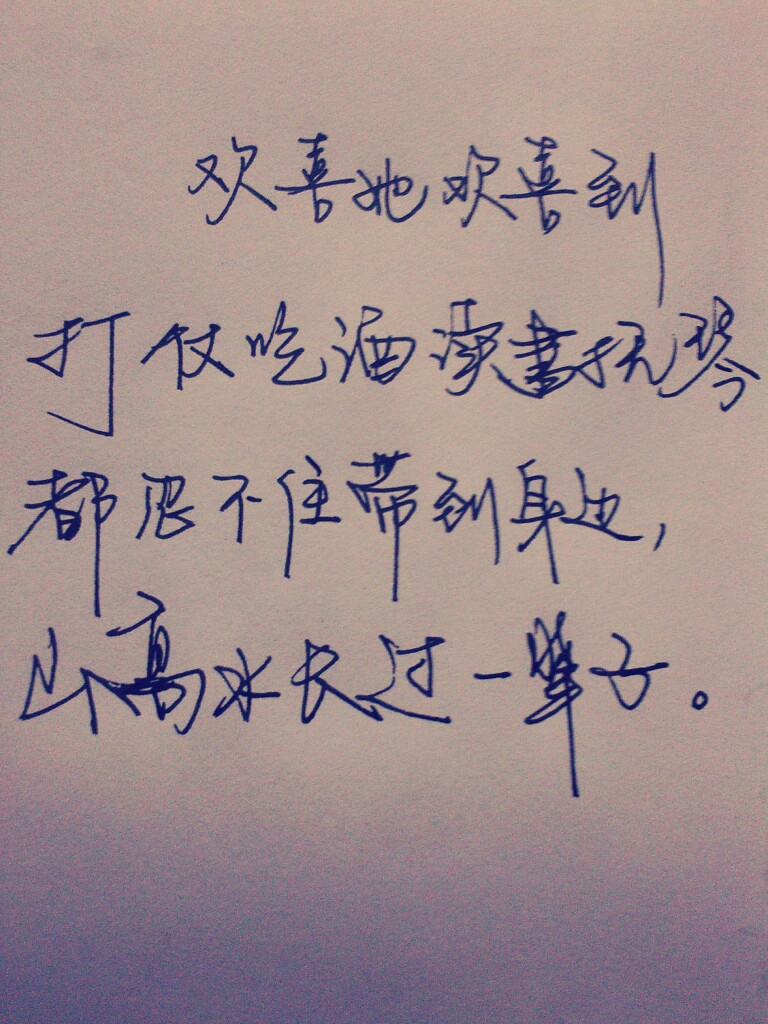 欢喜她欢喜到
打仗吃酒读書抚琴
都忍不住带到身边,
山高水长过一辈子。